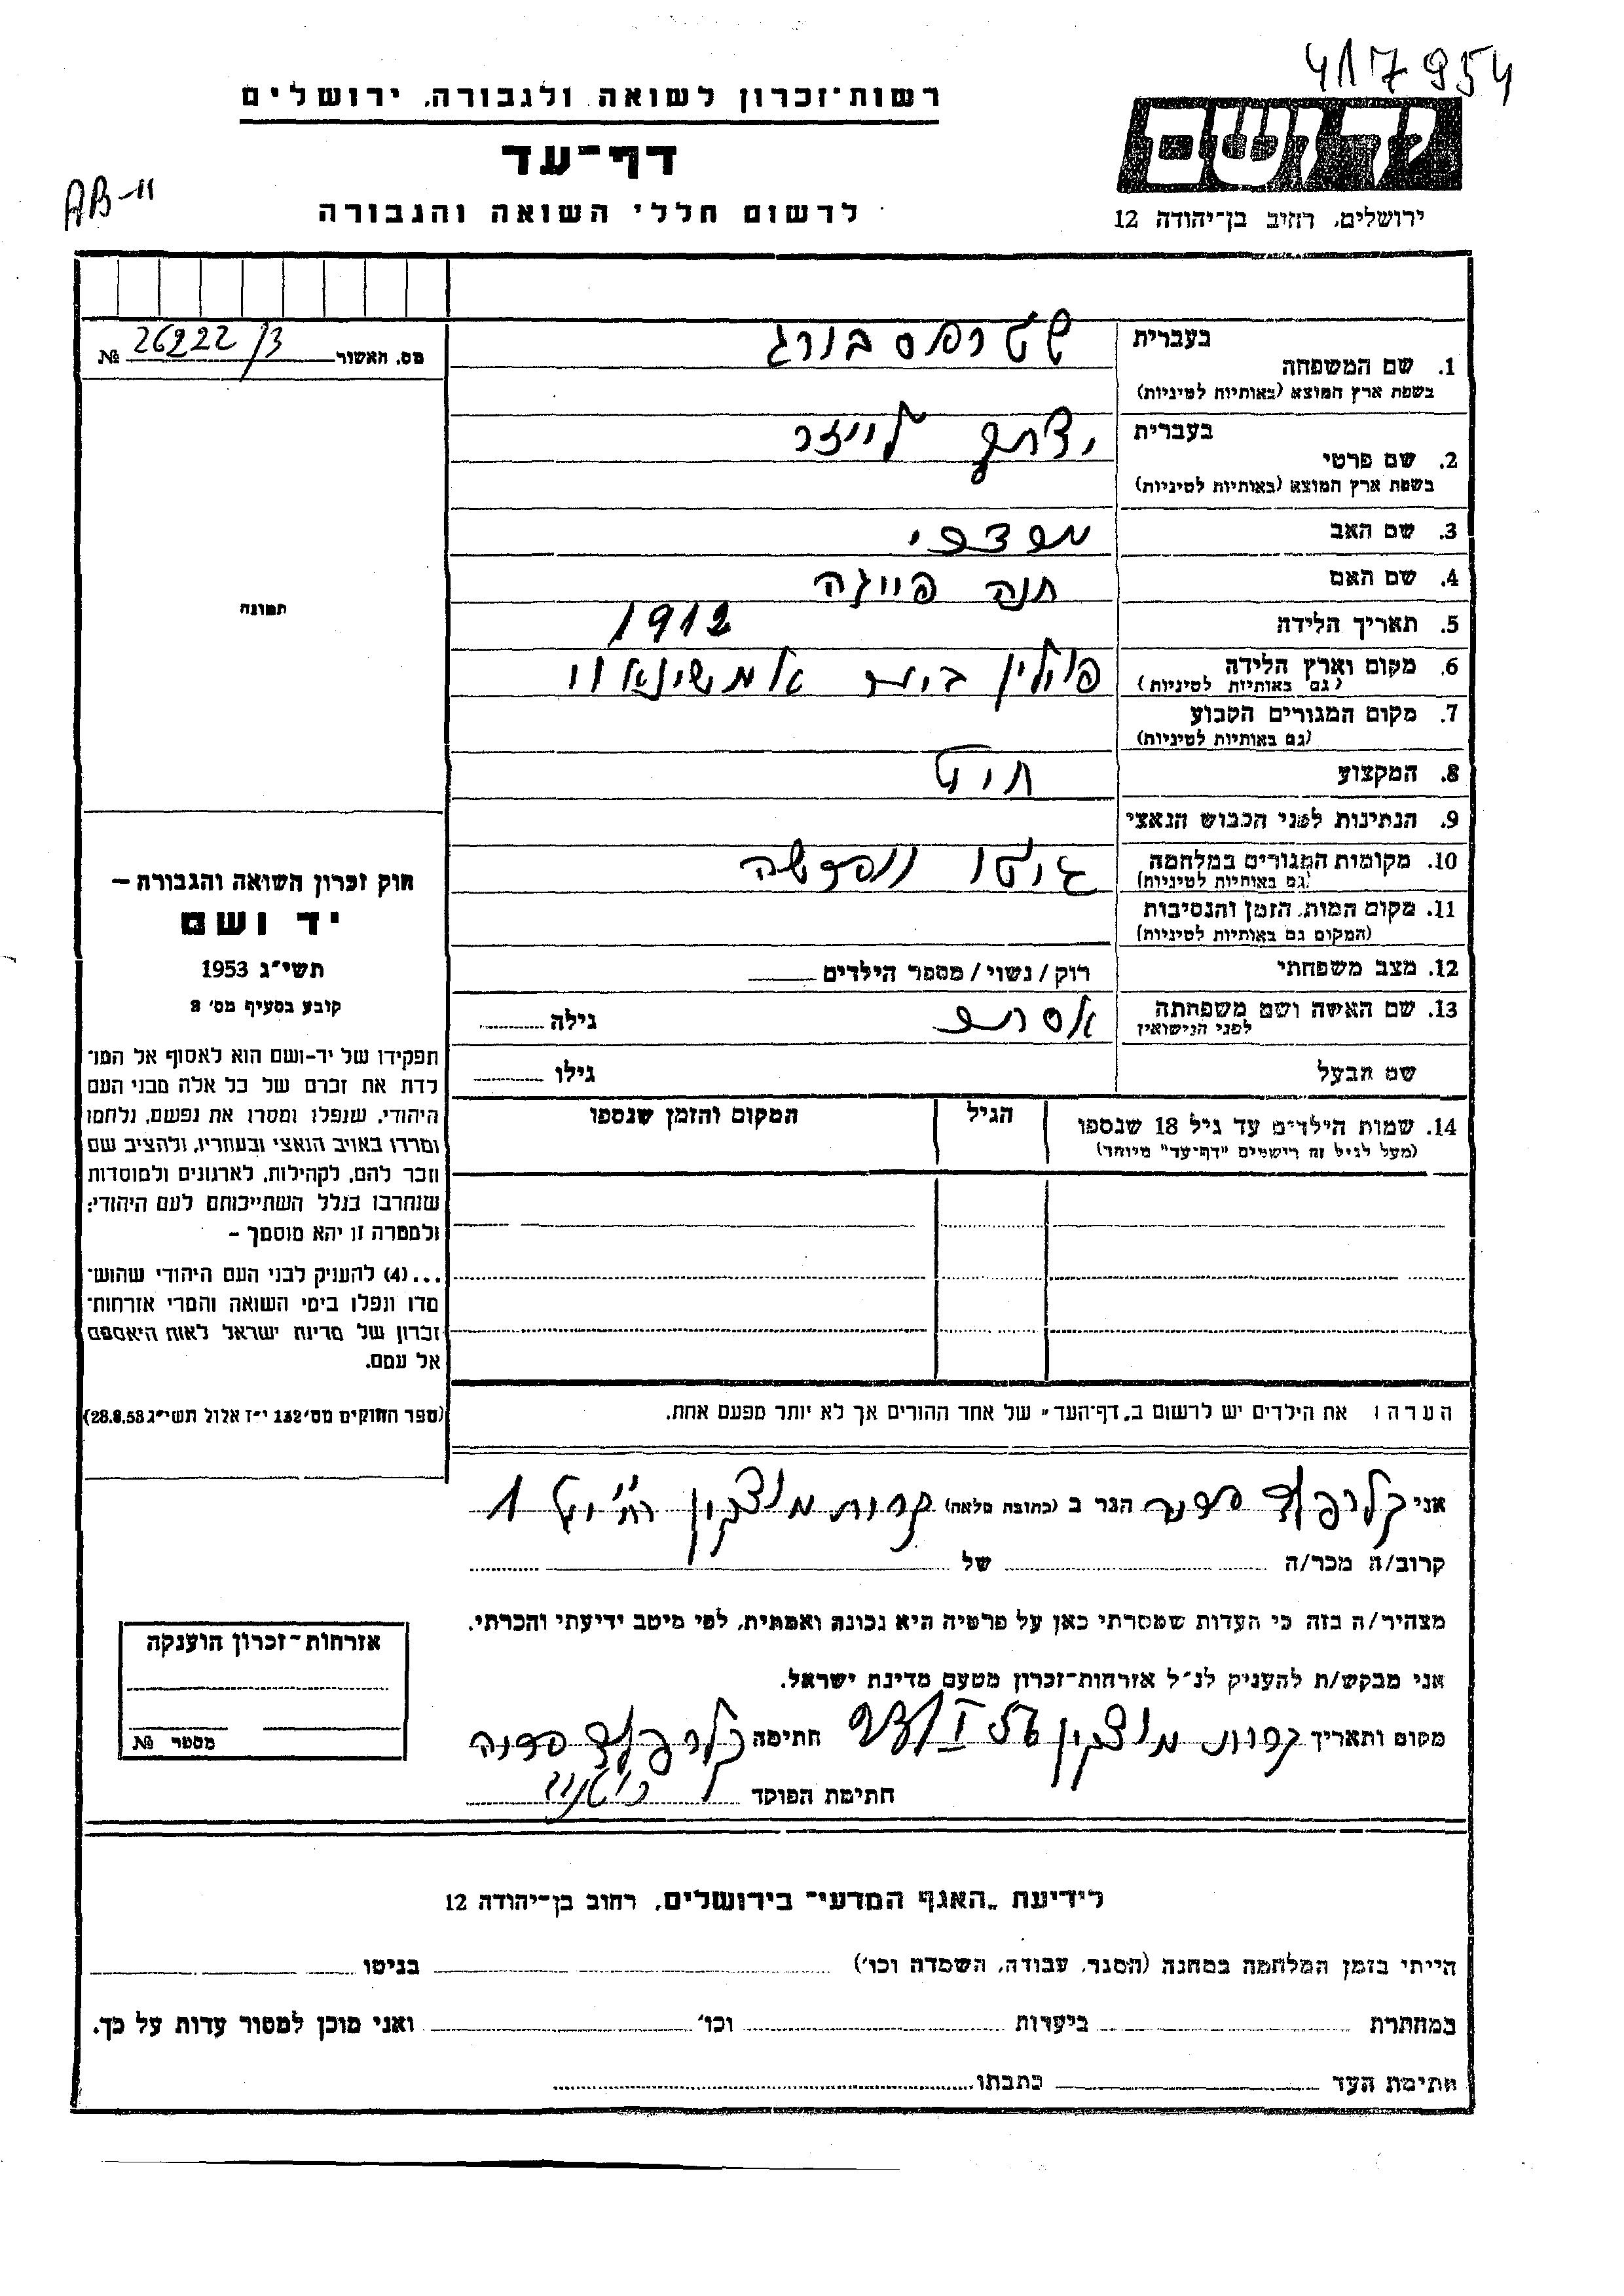 417954
רשות-זכרון לשואה ולגבורה, ירושלים
דף-עד
לרשום חללי השואה והגבורה
AB-11
יד ושם
ירושלים, רחוב בן-יהודה 12
מס. האשור 26222/3 №
תמונה
חוק זכרון השואה והגבורה –
יד ושם
תשי״ג 1953
קובע בסעיף מס׳ 2
תפקידו של יד-ושם הוא לאסוף אל המו־
לדת את זכרם של כל אלה מבני העם
היהודי, שנפלו ומסרו את נפשם, נלחמו
ומרדו באויב הנאצי ובעוזריו, ולהציב שם
וזכר להם, לקהילות, לארגונים ולמוסדות
שנחרבו בגלל השתייכותם לעם היהודי;
ולמטרה זו יהא מוסמך –
...(4) להעניק לבני העם היהודי שהוש־
מדו ונפלו בימי השואה והמרי אזרחות־
זכרון של מדינת ישראל לאות היאספם
אל עמם.
(ספר החוקים מס׳ 132 י״ז אלול תשי״ג 28.8.53)
בעברית
1. שם המשפחה שטרסבורג
בשפת ארץ המוצא (באותיות לטיניות)
בעברית
2. שם פרטי לייזר
בשפת ארץ המוצא (באותיות לטיניות)
3. שם האב
4. שם האם חנה פייגה
5. תאריך הלידה 1912
6. מקום וארץ הלידה פולין
(גם באותיות לטיניות)
7. מקום המגורים הקבוע
(גם באותיות לטיניות)
8. המקצוע חיט
9. הנתינות לפני הכבוש הנאצי
10. מקומות המגורים במלחמה גיטו וורשה
(גם באותיות לטיניות)
11. מקום המות, הזמן והנסיבות
(המקום גם באותיות לטיניות)
12. מצב משפחתי רוק/נשוי/מספר הילדים
13. שם האשה ושם משפחתה אסתר גילה
לפני הנישואין
שם הבעל גילו
14. שמות הילדים עד גיל 18 שנספו הגיל המקום והזמן שנספו
(מעל לגיל זה רישמים "דף-עד" מיוחד)
הערה: את הילדים יש לרשום ב„דף-העד" של אחד ההורים אך לא יותר מפעם אחת.
אני הגר ב (כתובת מלאה) קרית מוצקין
קרוב/ה מכר/ה של
מצהיר/ה בזה כי העדות שמסרתי כאן על פרטיה היא נכונה ואמתית, לפי מיטב ידיעתי והכרתי.
אני מבקש/ת להעניק לנ״ל אזרחות-זכרון מטעם מדינת ישראל.
מקום ותאריך קרית מוצקין חתימה
חתימת הפוקד
אזרחות-זכרון הוענקה
מספר №
לידיעת „האגף המדעי" בירושלים, רחוב בן-יהודה 12
הייתי בזמן המלחמה במחנה (הסגר, עבודה, השמדה וכו׳) בגיטו
במחתרת ביערות וכו׳ ואני מוכן למסור עדות על כך.
חתימת העד כתבתו